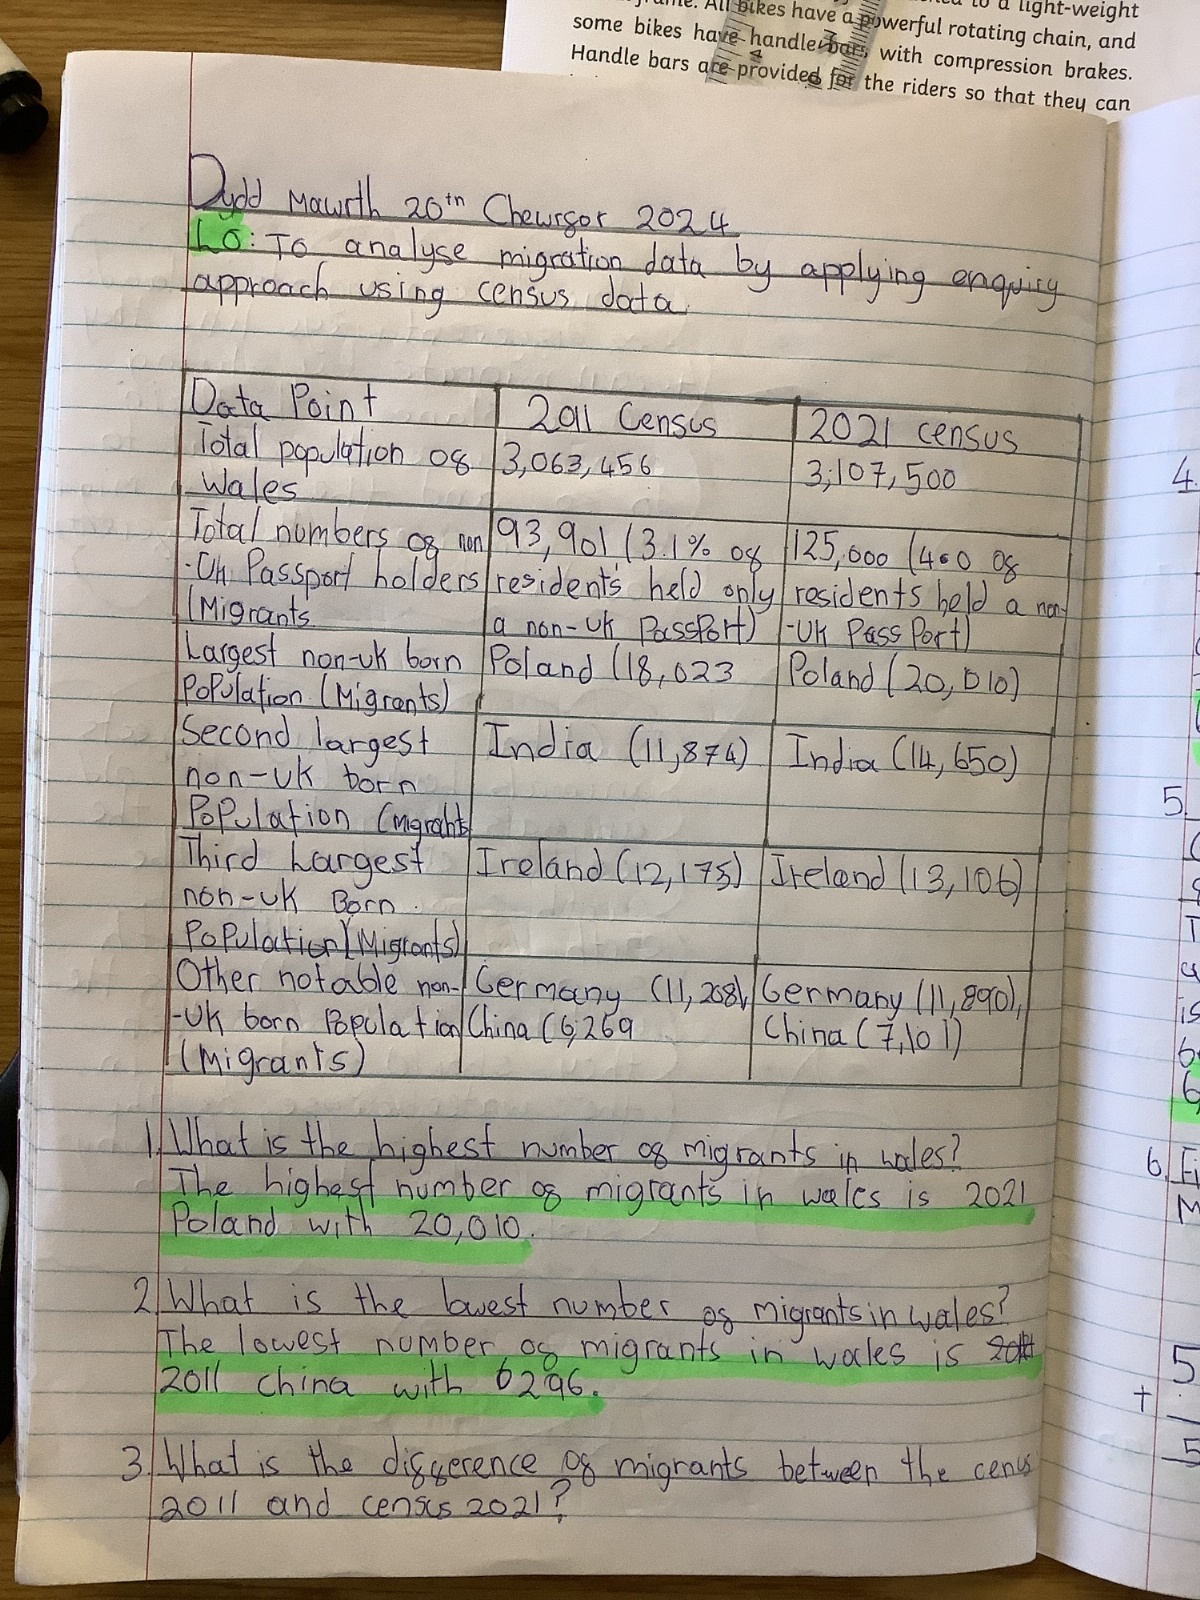 to a light-weight
All bikes have a powerful rotating chain, and
some bikes have handle bars with compression brakes.
Handle bars are provided for the riders so that they can
Dydd Mawrth 20th Chewrgor 2024
LO: To analyse migration data by applying enquiry
approach using census data
Data Point 2011 Census 2021 census
Total population of Wales 3,063,456 3,107,500
Total numbers of non-UK Passport holders (Migrants 93,901 (3.1% of residents held only a non-UK PassPort) 125,000 (4.0 of residents held a non-UK PassPort)
Largest non-uk born Population (Migrants) Poland (18,023 Poland (20,010)
Second largest non-uk born Population (migrants India (11,874) India (14,650)
Third Largest non-uk Born Population (Migrants) Ireland (12,175) Ireland (13,106)
Other notable non-UK born Population (Migrants) Germany (11,268), China (6,269 Germany (11,890), China (7,101)
1. What is the highest number of migrants in wales?
The highest number of migrants in wales is 2021
Poland with 20,010.
2. What is the lowest number of migrants in wales?
The lowest number of migrants in wales is
2011 china with 6296.
3. What is the difference of migrants between the cenus
2011 and census 2021?
4.
5.
6.
5
+
5